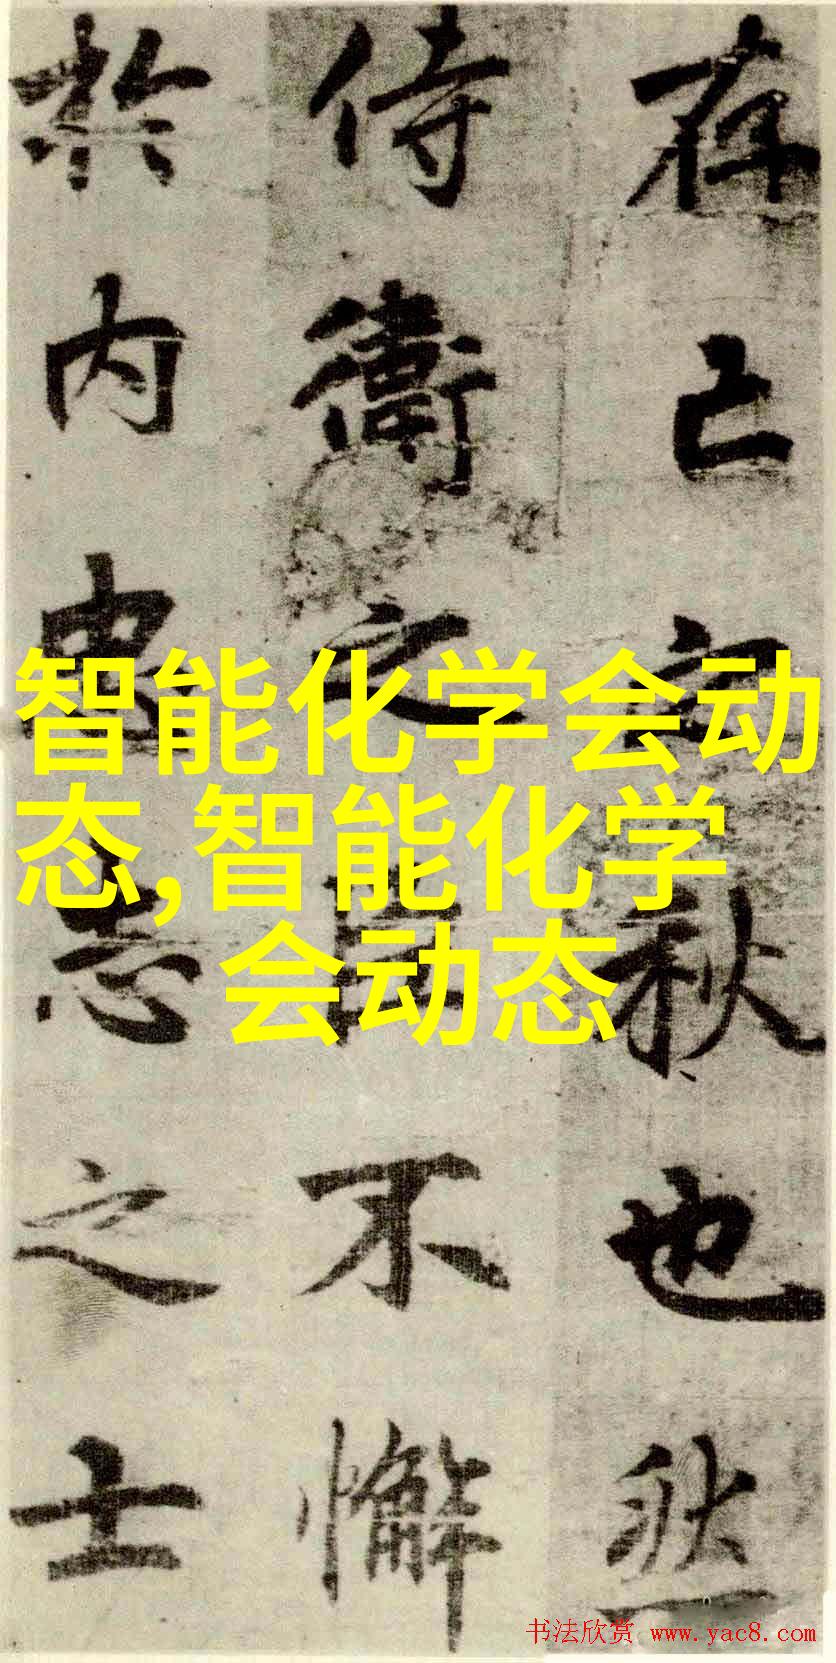 存亡之秋也然
侍衛之臣不懈
於内忠志之士
智能化学会动
态,智能化学
会动态
书法欣赏 www.yac8.com